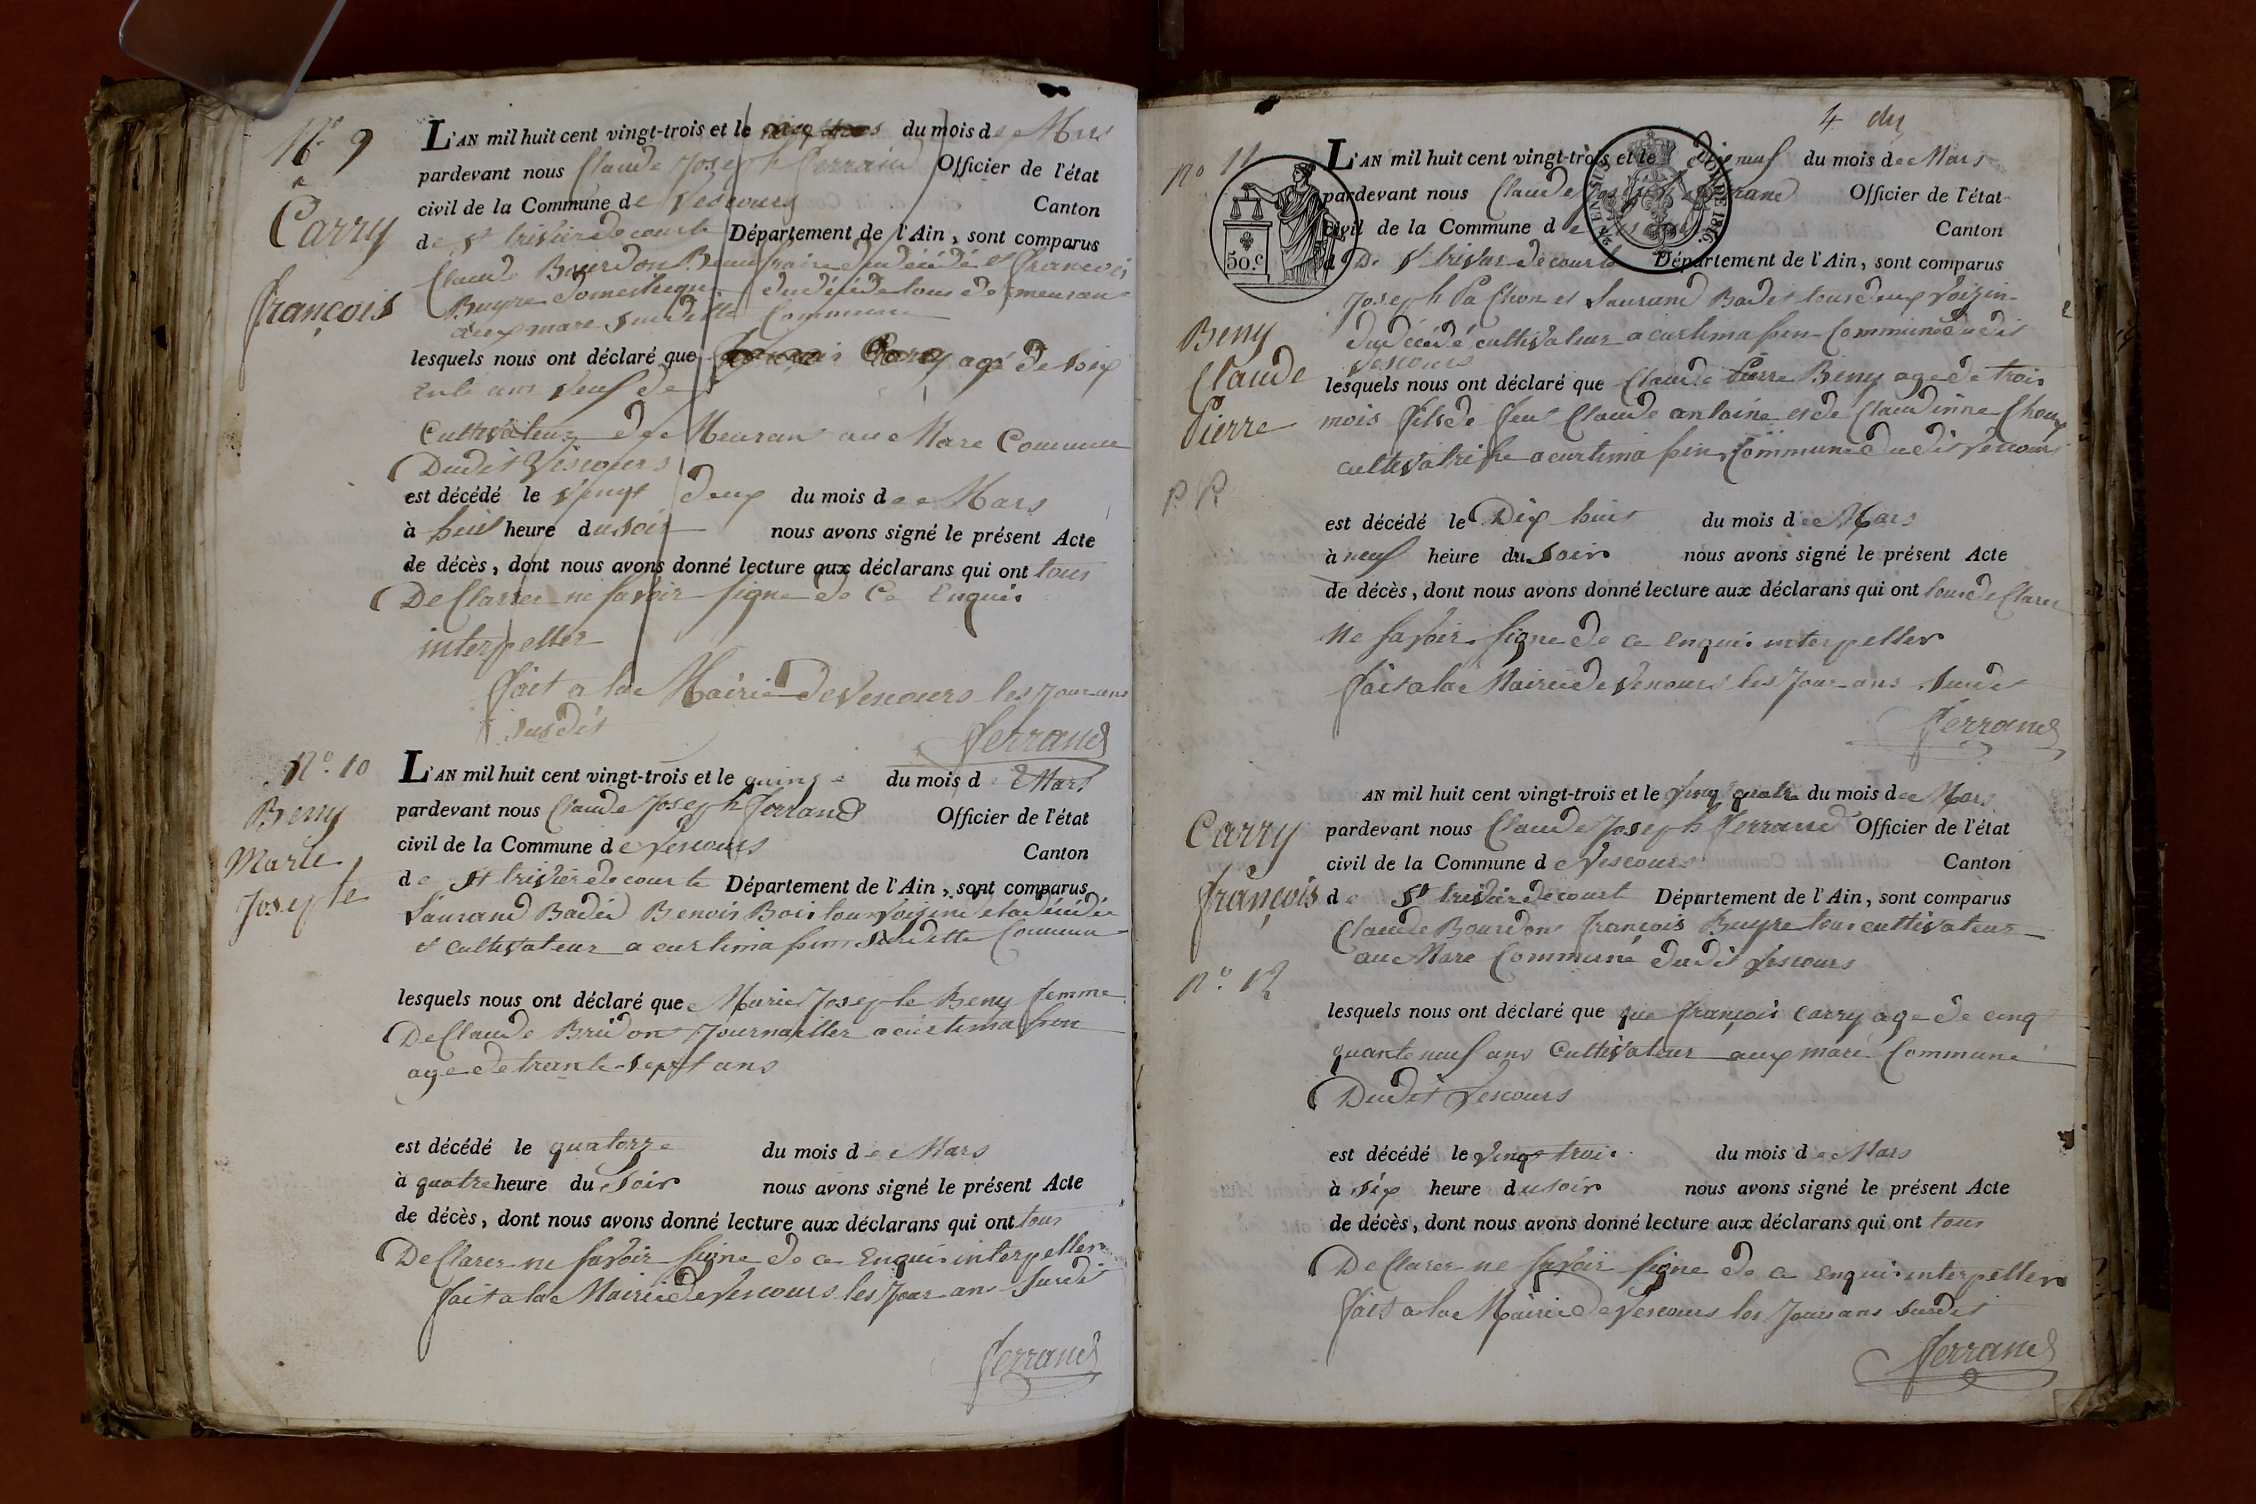 N° 9
Carry
françois
L'AN mil huit cent vingt-trois et le du mois de Mars
pardevant nous Claude Joseph ferrand Officier de l'état
civil de la Commune de Vescours Canton
de St trivier de courte Département de l'Ain, sont comparus
Claude Bourdon Beaufraire du décédé et francois
Buyre domestique du décédé tous demeurant
aux mare susditte Commune
lesquels nous ont déclaré que françois Carry agé de
ans veuf de
Cultivateur de Meurant au Mare Commune
Dudit Vescours
est décédé le vingt deux du mois de Mars
à huit heure du soir nous avons signé le présent Acte
de décès, dont nous avons donné lecture aux déclarans qui ont tous
DeClarer ne savoir signe de Ce Enquis
interpeller
fait a la Mairie de Vescours les Jour ans
susdit
ferrand
N° 10
Beny
Marie
Josephe
L'AN mil huit cent vingt-trois et le quinze du mois de Mars
pardevant nous Claude Joseph ferrand Officier de l'état
civil de la Commune de Vescours Canton
de St trivier de courte Département de l'Ain, sont comparus
Laurand Badéd Benoit Bois tous Voisins de la décédée
et cultivateur a curtima susditte Commune
lesquels nous ont déclaré que Marie Josephe Beny femme
De Claude Bridon Journallier a curtima
age de trante-sept ans
est décédé le quatorze du mois de Mars
à quatre heure du soir nous avons signé le présent Acte
de décès, dont nous avons donné lecture aux déclarans qui ont tous
DeClarer ne savoir signe de ce Enquis interpeller
fait a la Mairie de Vescours les Jour ans susdit
ferrand
4 du
N° 11
50.c
TIMBRE ROYAL
Beny
Claude
Pierre
L'AN mil huit cent vingt-trois et le dix neuf du mois de Mars
pardevant nous Claude Joseph ferrand Officier de l'état
civil de la Commune de Vescours Canton
De St trivier de courte Département de l'Ain, sont comparus
Joseph Pachon et Laurand Badet tous deux Voizin
du décédé cultivateur a curtima Commune dudit
Vescours
lesquels nous ont déclaré que Claude Pierre Beny age de trois
mois fils de feut Claude antoine et de Claudinne Choux
cultivatrisse a curtima Commune dudit Vescours
est décédé le Dix huit du mois de Mars
à neuf heure du soir nous avons signé le présent Acte
de décès, dont nous avons donné lecture aux déclarans qui ont tous deClarer
Ne savoir signe de ce enquis interpeller
fait a la Mairie de Vescours les Jour ans susdit
ferrand
Carry
françois
N° 12
AN mil huit cent vingt-trois et le vingt quatre du mois de Mars
pardevant nous Claude Joseph ferrand Officier de l'état
civil de la Commune de Vescours Canton
de St trivier de court Département de l'Ain, sont comparus
Claude Bourdon françois Buyre tous cultivateur
au Mare Commune dudit Vescours
lesquels nous ont déclaré que que françois Carry age de cinq
quante neuf ans Cultivateur aux mare Commune
Dudit Vescours
est décédé le Vingt trois du mois de Mars
à six heure du soir nous avons signé le présent Acte
de décès, dont nous avons donné lecture aux déclarans qui ont tous
DeClarer ne savoir signe de ce enquis interpeller
fait a la Mairie de Vescours les Jour ans susdit
ferrand